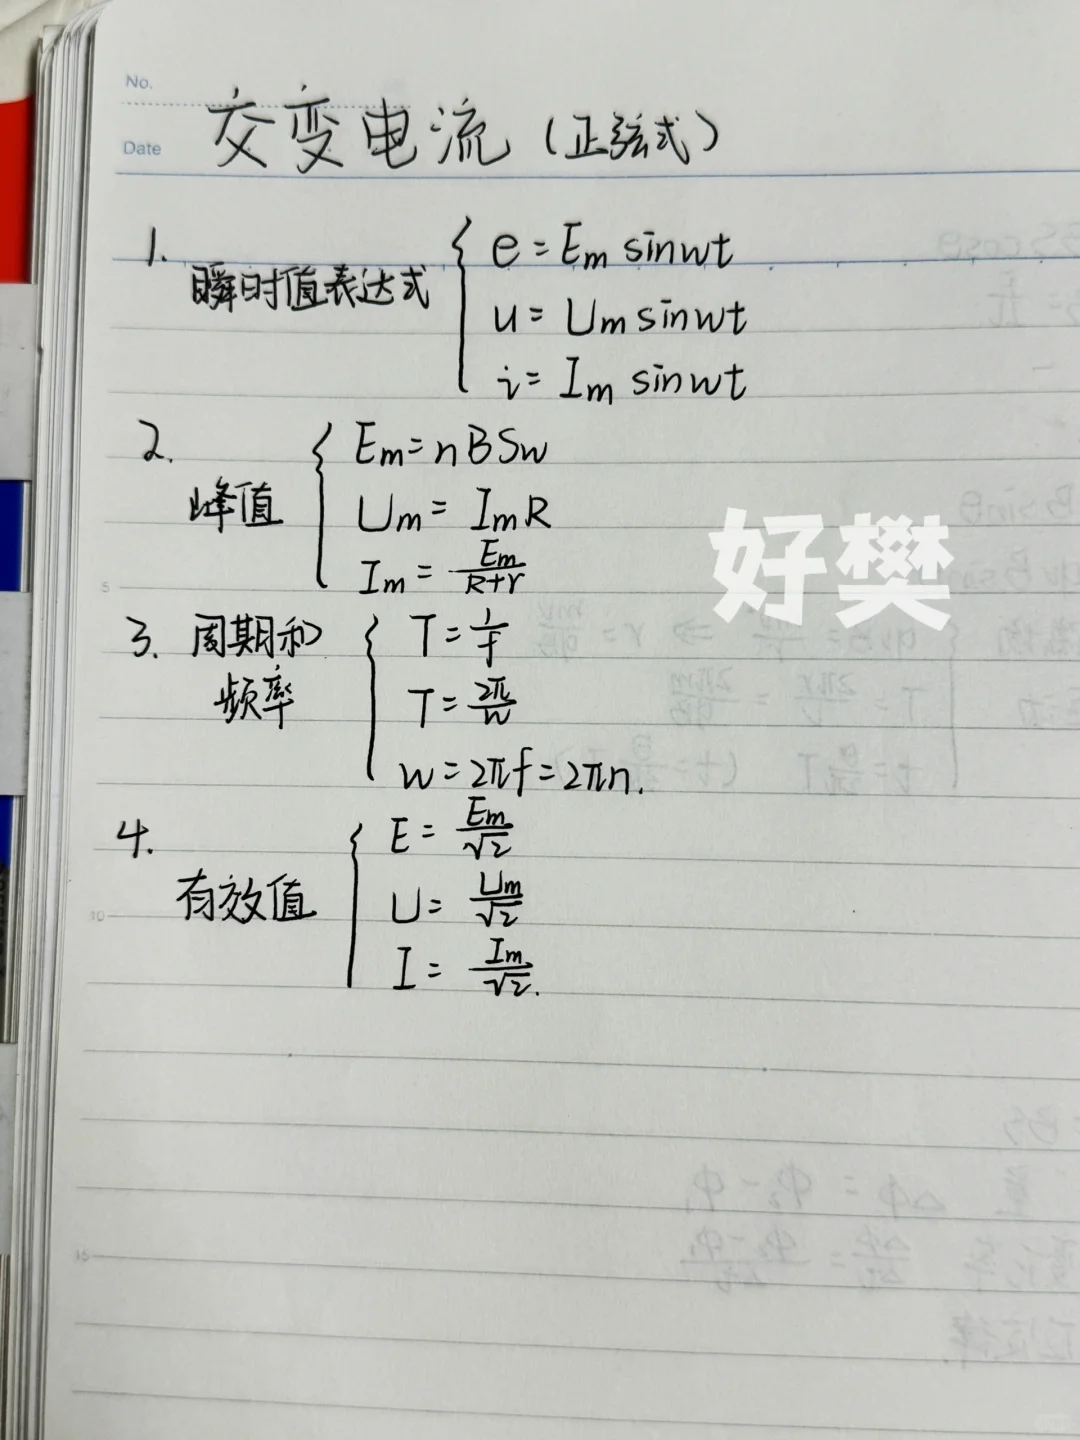 No.
Date
交变电流(正弦式)
1. 瞬时值表达式
e = Em sinwt
u = Um sinwt
i = Im sinwt
2. 峰值
Em = nBSw
Um = ImR
Im = Em/(R+r)
好樊
3. 周期和
频率
T = 1/f
T = 2π/w
w = 2πf = 2πn.
4. 有效值
E = Em/√2
U = Um/√2
I = Im/√2.
5
10
15